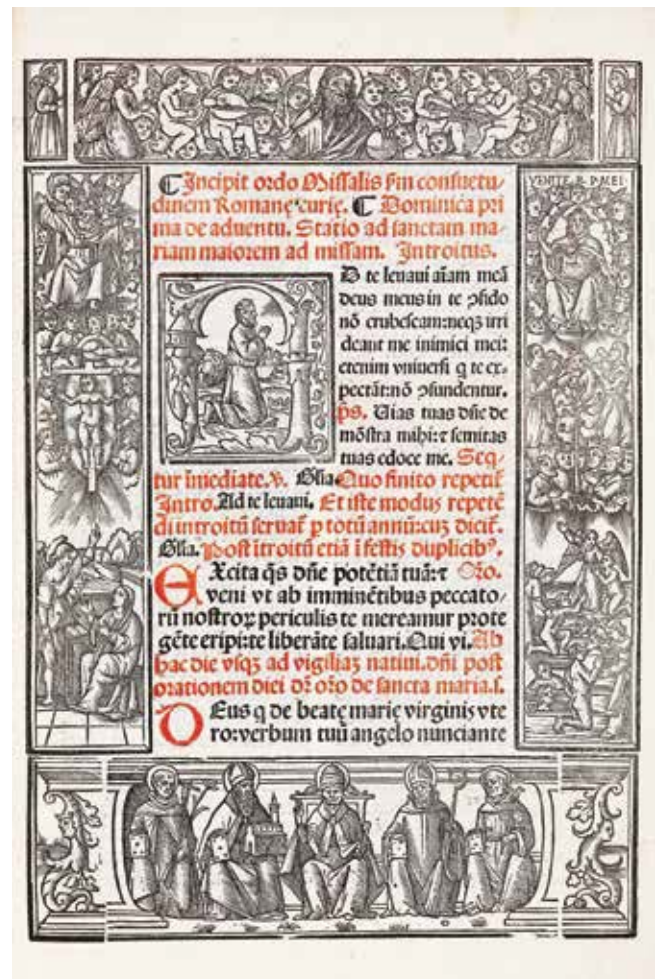 Incipit ordo Missalis ẜm consuetu-
dinem Romanę curię. Dominica pri
ma de aduentu. Statio ad sanctam ma-
riam maiorem ad missam. Introitus.
VENITE B P MEI
AD te leuaui aīam meā
deus meus in te ꝯfido
nō erubescam: neqꝫ irri
deant me inimici mei:
etenim vniuersi q te ex-
pectāt: nō ꝯfundentur.
ps. Uias tuas dn̄e de
mōstra mihi: ⁊ semitas
tuas edoce me. Seq̄-
tur īmediate. v. Gl̄ia. Quo finito repetit̄
Intro. Ad te leuaui. Et iste modus repetē
di introitū seruat̄ p totū annū: cuꝫ dicit̄.
Gl̄ia. Post ītroitū etiā ī festis duplicibꝰ.
EXcita q̄s dn̄e potētiā tuā: ⁊ Oro.
veni vt ab imminētibus peccato-
rū nostroꝝ periculis te mereamur prote
gēte eripi: te liberāte saluari. Qui vi. Ab
hac die vsqꝫ ad vigiliaꝫ natiui. dn̄i post
orationem diei dr̄ oro de sancta maria. s.
DEus q de beatę marię virginis vte
ro: verbum tuū angelo nunciante